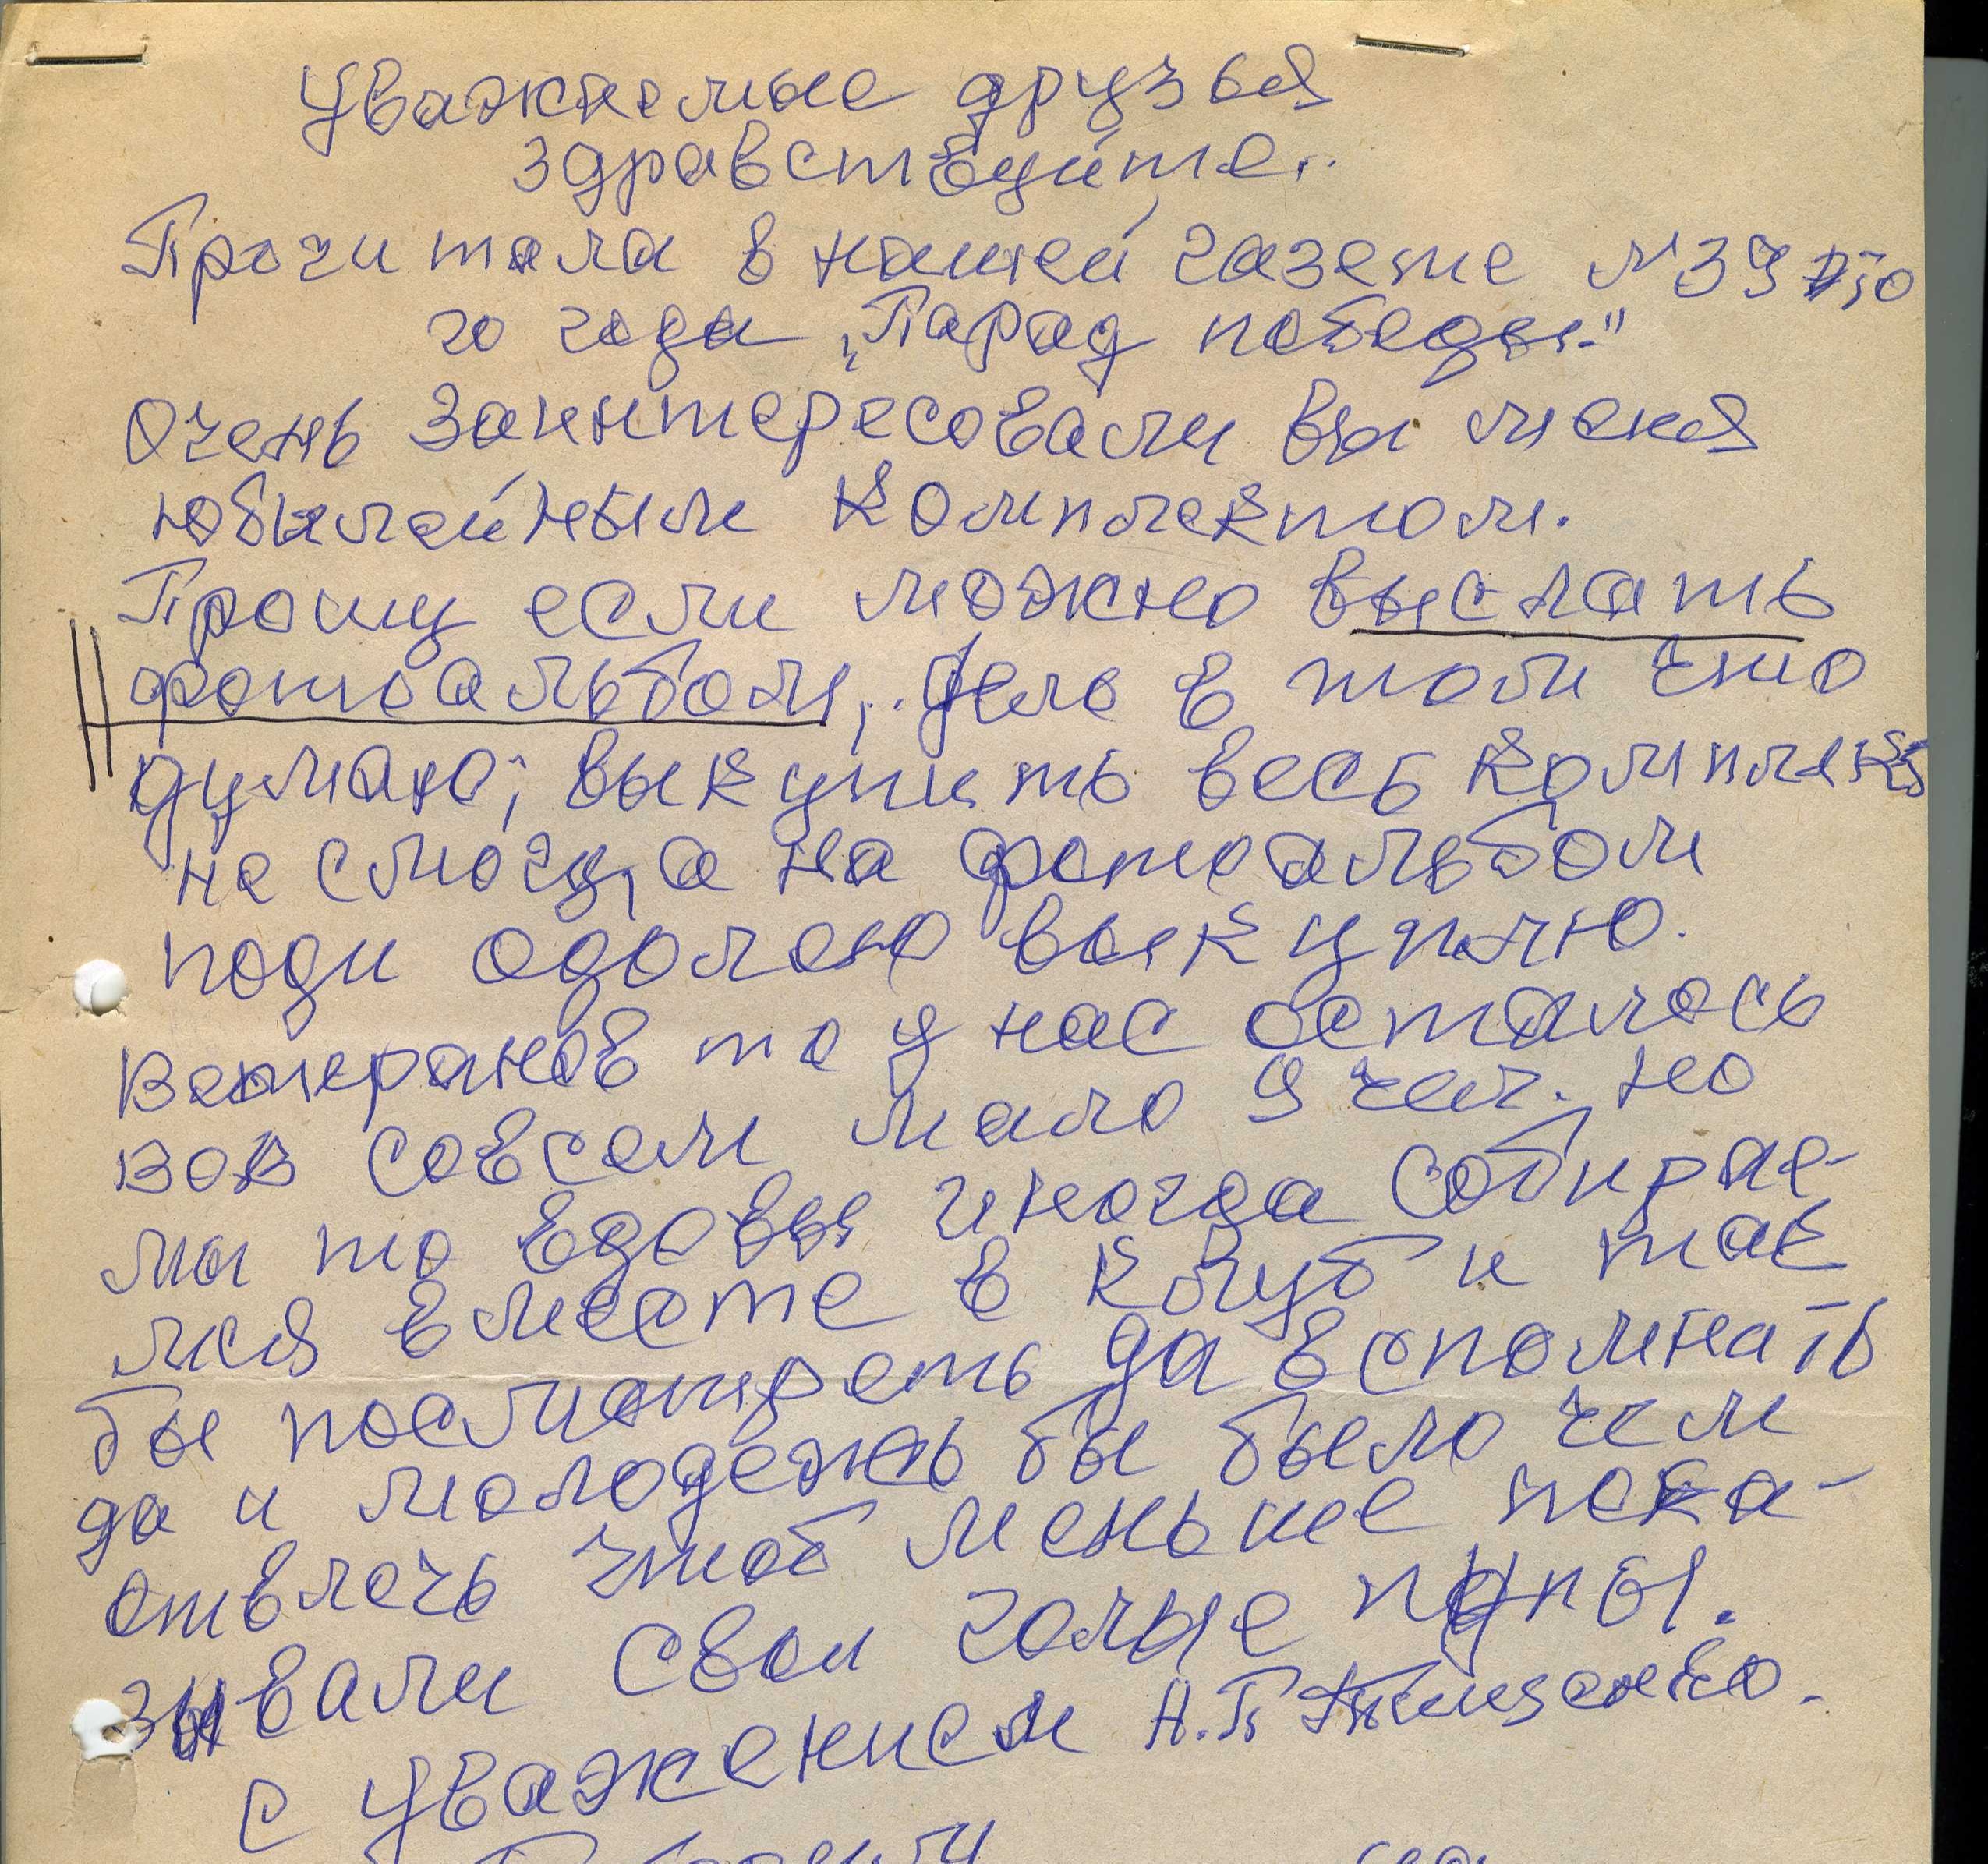 Уважаемые друзья
здравствуйте..
Прочитала в нашей газете №39
го года „Парад победы."
Очень заинтересовали вы меня
юбилейным комплектом.
Прошу если можно выслать
фотоальбом,. Дело в том что
думаю; выкупить весь комплект
не смогу, а на фотоальбом
поди одолею выкуплю.
Ветеранов то у нас осталось
вов совсем мало 9 чел. но
мы то вдовы иногда собирае-
мся вместе в клуб и так
бы посмотреть да вспомнать
да и молодежь бы было чем
отвлечь чтоб меньше пока-
зывали свои голые пупы.
С уважением Н.П